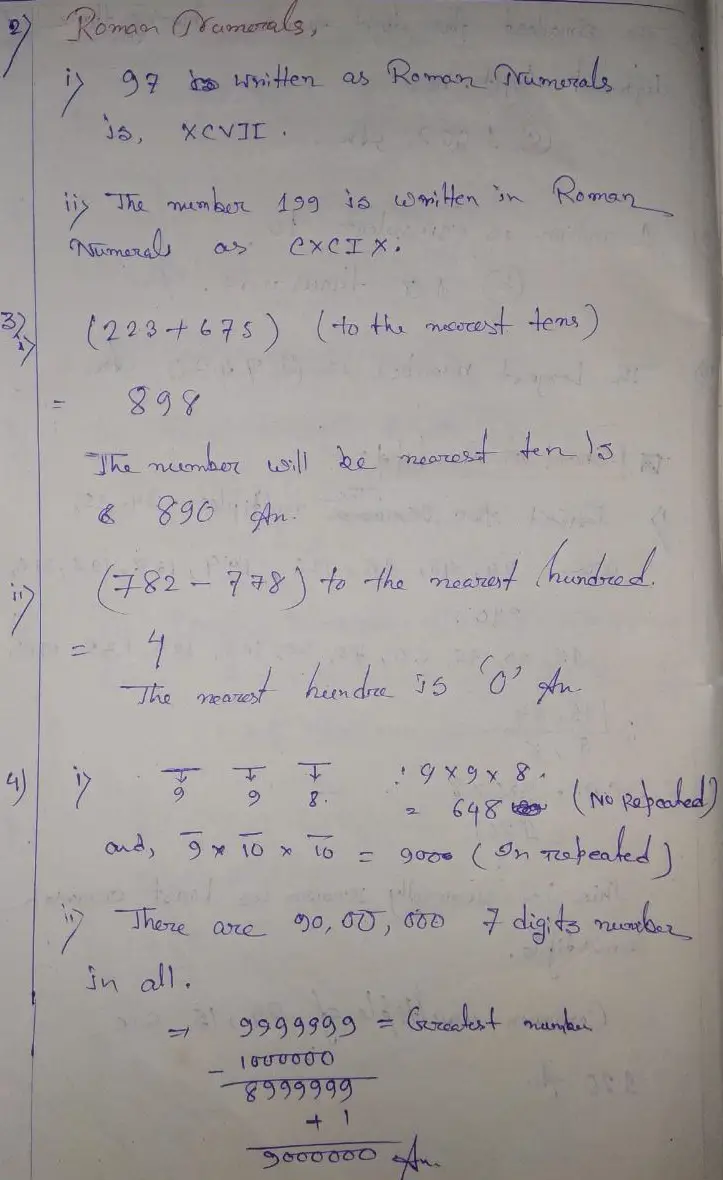 2) Roman Numerals,
i) 97 is written as Roman Numerals
is, XCVII.
ii) The number 199 is written in Roman
Numerals as CXCIX.
3) i) (223+675) (to the nearest tens)
= 898
The number will be nearest ten is
890 An.
ii) (782 - 778) to the nearest hundred.
= 4
The nearest hundre is '0' An
4) i) 9 9 8. : 9 x 9 x 8.
= 648 (No Repeated)
and, 9 x 10 x 10 = 900 (In repeated)
ii) There are 90,00,000 7 digits number
in all.
⇒ 9999999 = Greatest number
- 1000000
8999999
+ 1
9000000 An.